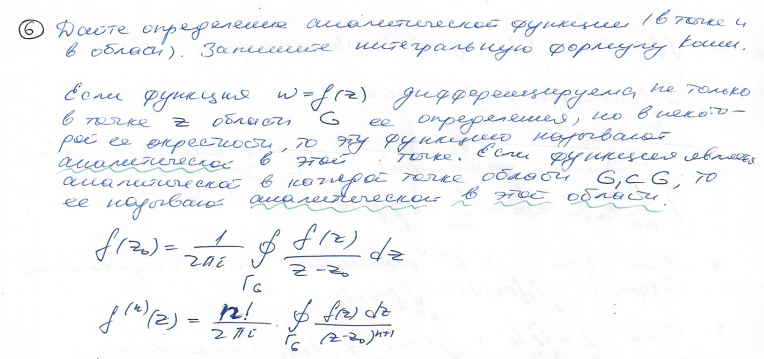 ⑥ Дайте определение аналитической функции (в точке и
в области). Запишите интегральную формулу Коши.
Если функция w=f(z) дифференцируема не только
в точке z области G ее определения, но в некото-
рой ее окрестности, то эту функцию называют
аналитической в этой точке. Если функция является
аналитической в каждой точке области G₁⊂G, то
ее называют аналитической в этой области.
f(z₀) = 1/(2πi) ∮_{Γ_G} f(z)/(z-z₀) dz
f⁽ⁿ⁾(z) = n!/(2πi) · ∮_{Γ_G} f(z) dz/(z-z₀)ⁿ⁺¹